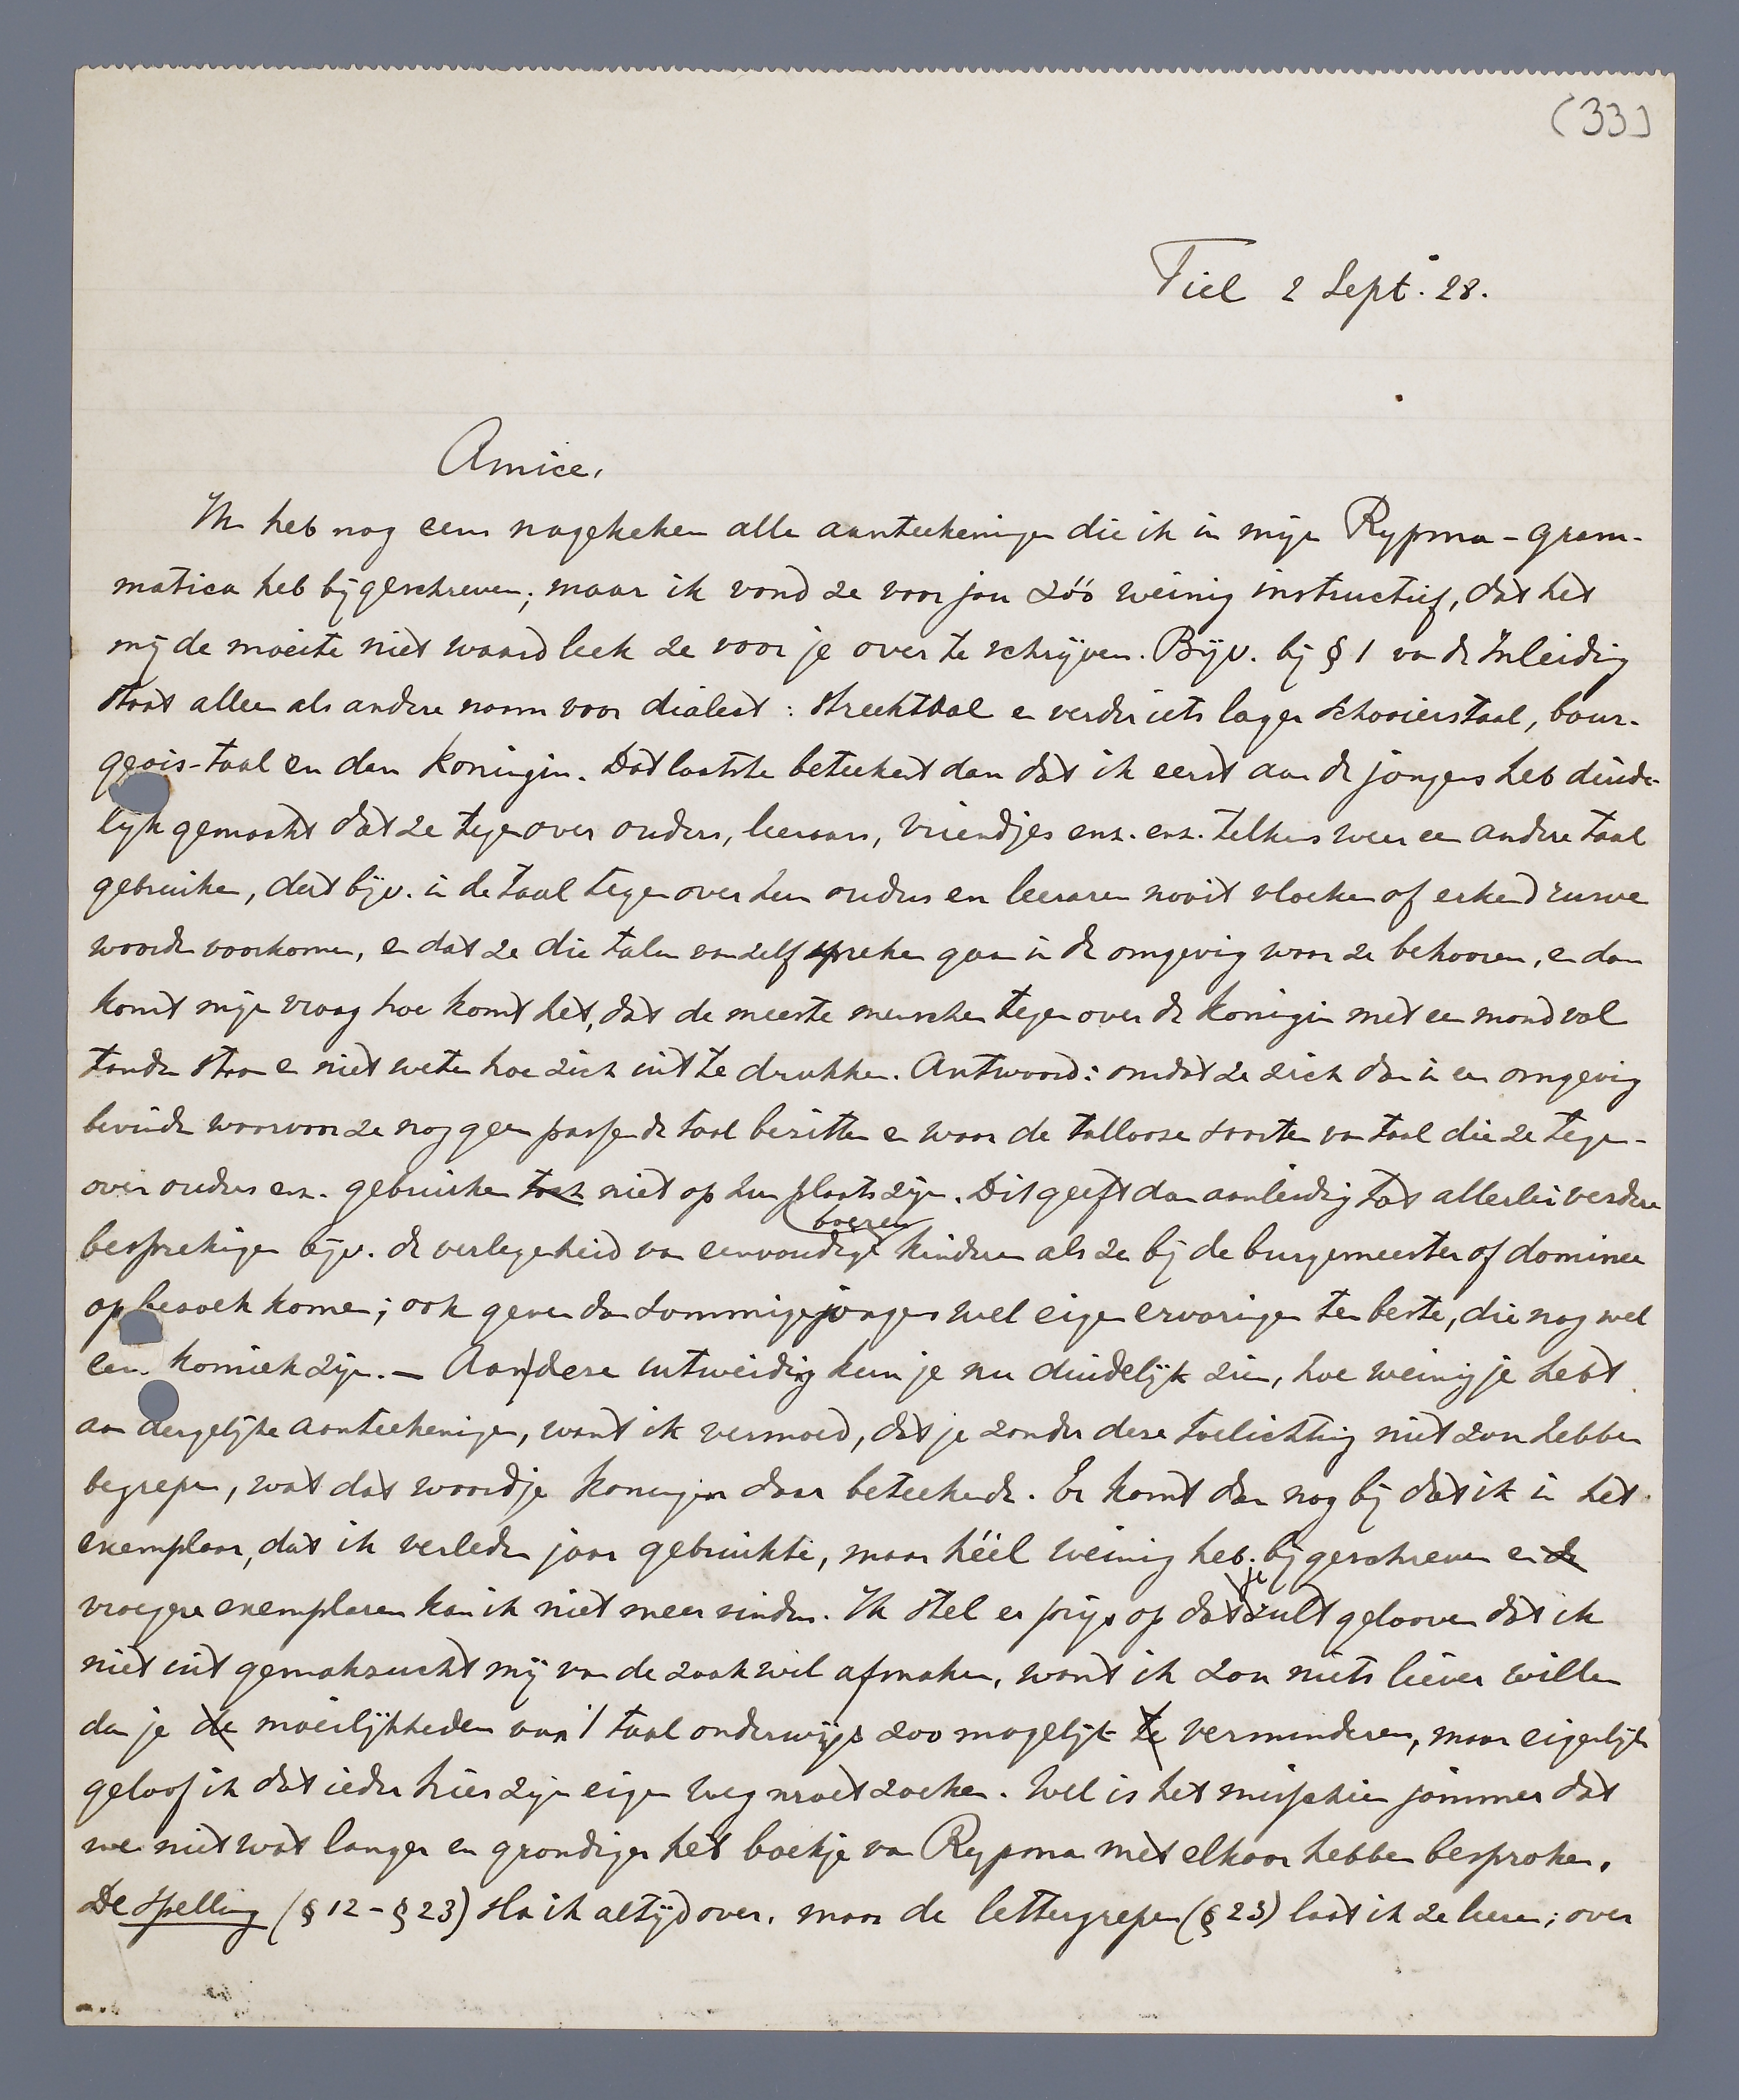 (33)
Tiel 2 Sept. 28.
Amice,
Ik heb nog eens nagekeken alle aanteekeningen die ik in mijn Rypma-gram-
matica heb bijgeschreven; maar ik vond ze voor jou zóó weinig instructief, dat het
mij de moeite niet waard leek ze voor je over te schrijven. Bijv. bij § 1 van de Inleiding
staat alleen als andere naam voor dialect: streektaal en verder iets lager schooierstaal, bour-
geois-taal en dan koningin. Dat laatste beteekent dan dat ik eerst aan de jongens heb duide-
lijk gemaakt dat ze tegenover ouders, leeraars, vriendjes enz. enz. telkens weer een andere taal
gebruiken, dat bijv. in de taal tegenover hun ouders en leeraren nooit vloeken of erkend ruwe
woorden voorkomen, en dat ze die talen vanzelf spreken gaan in de omgeving waar ze behooren, en dan
komt mijn vraag hoe komt het, dat de meeste menschen tegenover de koningin met een mond vol
tanden staan en niet weten hoe zich uit te drukken. Antwoord: omdat ze zich dan in een omgeving
bevinden waarvoor ze nog geen passende taal bezitten en waar de tallooze soorten van taal die ze tegen-
over ouders enz. gebruiken toch niet op hun plaats zijn. Dit geeft dan aanleiding tot allerlei verdere
besprekingen bijv. de verlegenheid van eenvoudige boeren kinderen als ze bij de burgemeester of dominee
op bezoek komen; ook geven dan sommige jongens wel eigen ervaringen ten beste, die nog wel
eens komiek zijn. — Aan deze uitweiding kun je nu duidelijk zien, hoe weinig je hebt
aan dergelijke aanteekeningen, want ik vermoed, dat je zonder deze toelichting niet zou hebben
begrepen, wat dat woordje koningin daar beteekende. Er komt dan nog bij dat ik in het
exemplaar, dat ik verleden jaar gebruikte, maar héél weinig heb bijgeschreven en de
vroegere exemplaren kan ik niet meer vinden. Ik stel er prijs op dat je zult gelooven dat ik
niet uit gemakzucht mij van de zaak wil afmaken, want ik zou niets liever willen
dan je de moeilijkheden van 't taalonderwijs zoo mogelijk te verminderen, maar eigenlijk
geloof ik dat ieder hier zijn eigen weg moet zoeken. Wel is het misschien jammer dat
we niet wat langer en grondiger het boekje van Rypma met elkaar hebben besproken.
De spelling (§ 12 - § 23) sla ik altijd over, maar de lettergrepen (§ 23) laat ik ze leeren; over